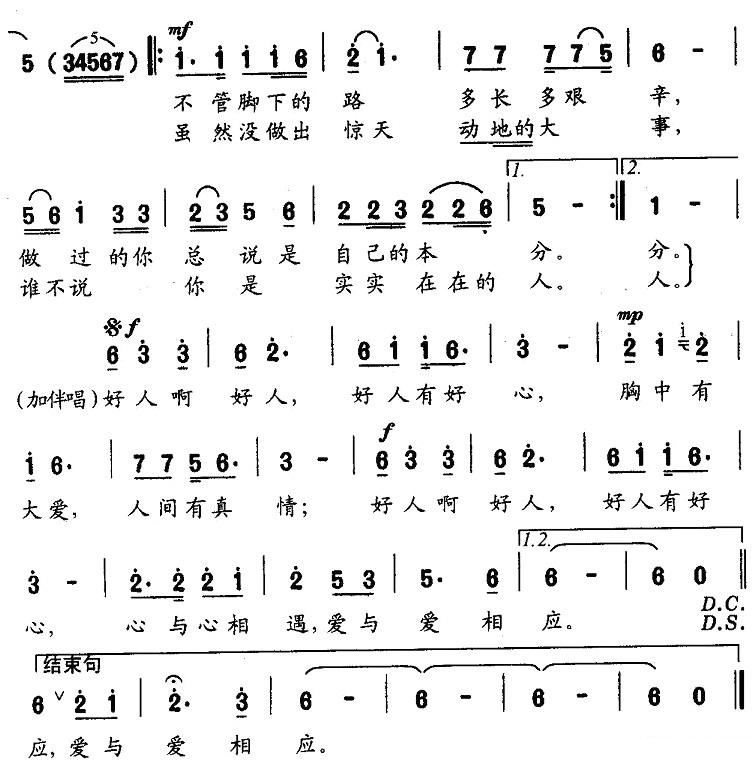 mf
5 (34567) 1· 1 1 1 6 2 1· 7 7 7 7 5 6 -
5
不管脚下的 路 多长多艰 辛,
虽然没做出 惊天 动地的大 事,
1. 2.
5 6 1 3 3 2 3 5 6 2 2 3 2 2 6 5 - 1 -
做过的你 总 说是 自己的本 分。 分。
谁不说 你 是 实实在在的 人。 人。
f mp
6 3 3 6 2· 6 1 1 6· 3 - 2 1 i 2
(加伴唱)好人啊 好人, 好人有好 心, 胸中有
f
1 6· 7 7 5 6· 3 - 6 3 3 6 2· 6 1 1 6·
大爱, 人间有真 情; 好人啊 好人, 好人有好
1.2.
3 - 2· 2 2 1 2 5 3 5· 6 6 - 6 0
D.C.
心, 心与心相 遇,爱与 爱 相 应。 D.S.
结束句
6 ∨ 2 1 2· 3 6 - 6 - 6 - 6 0
应,爱与 爱 相 应。